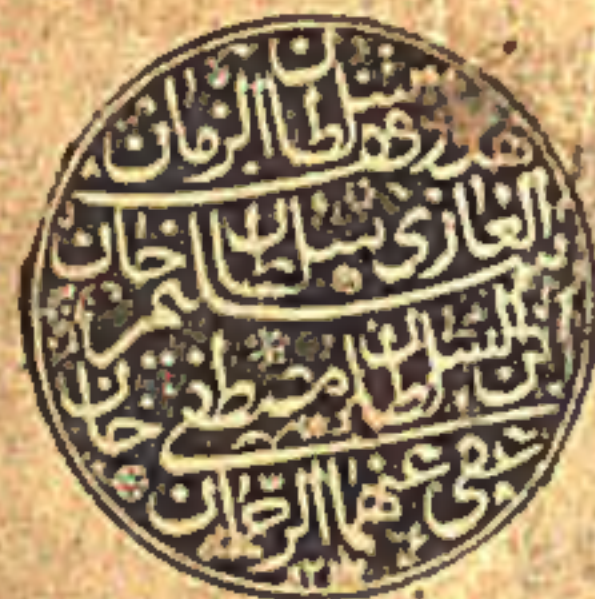 سلطان الزمان
الغازي سلطان سليم خان
بن السلطان مصطفى خان
عفى عنهما الرحمان